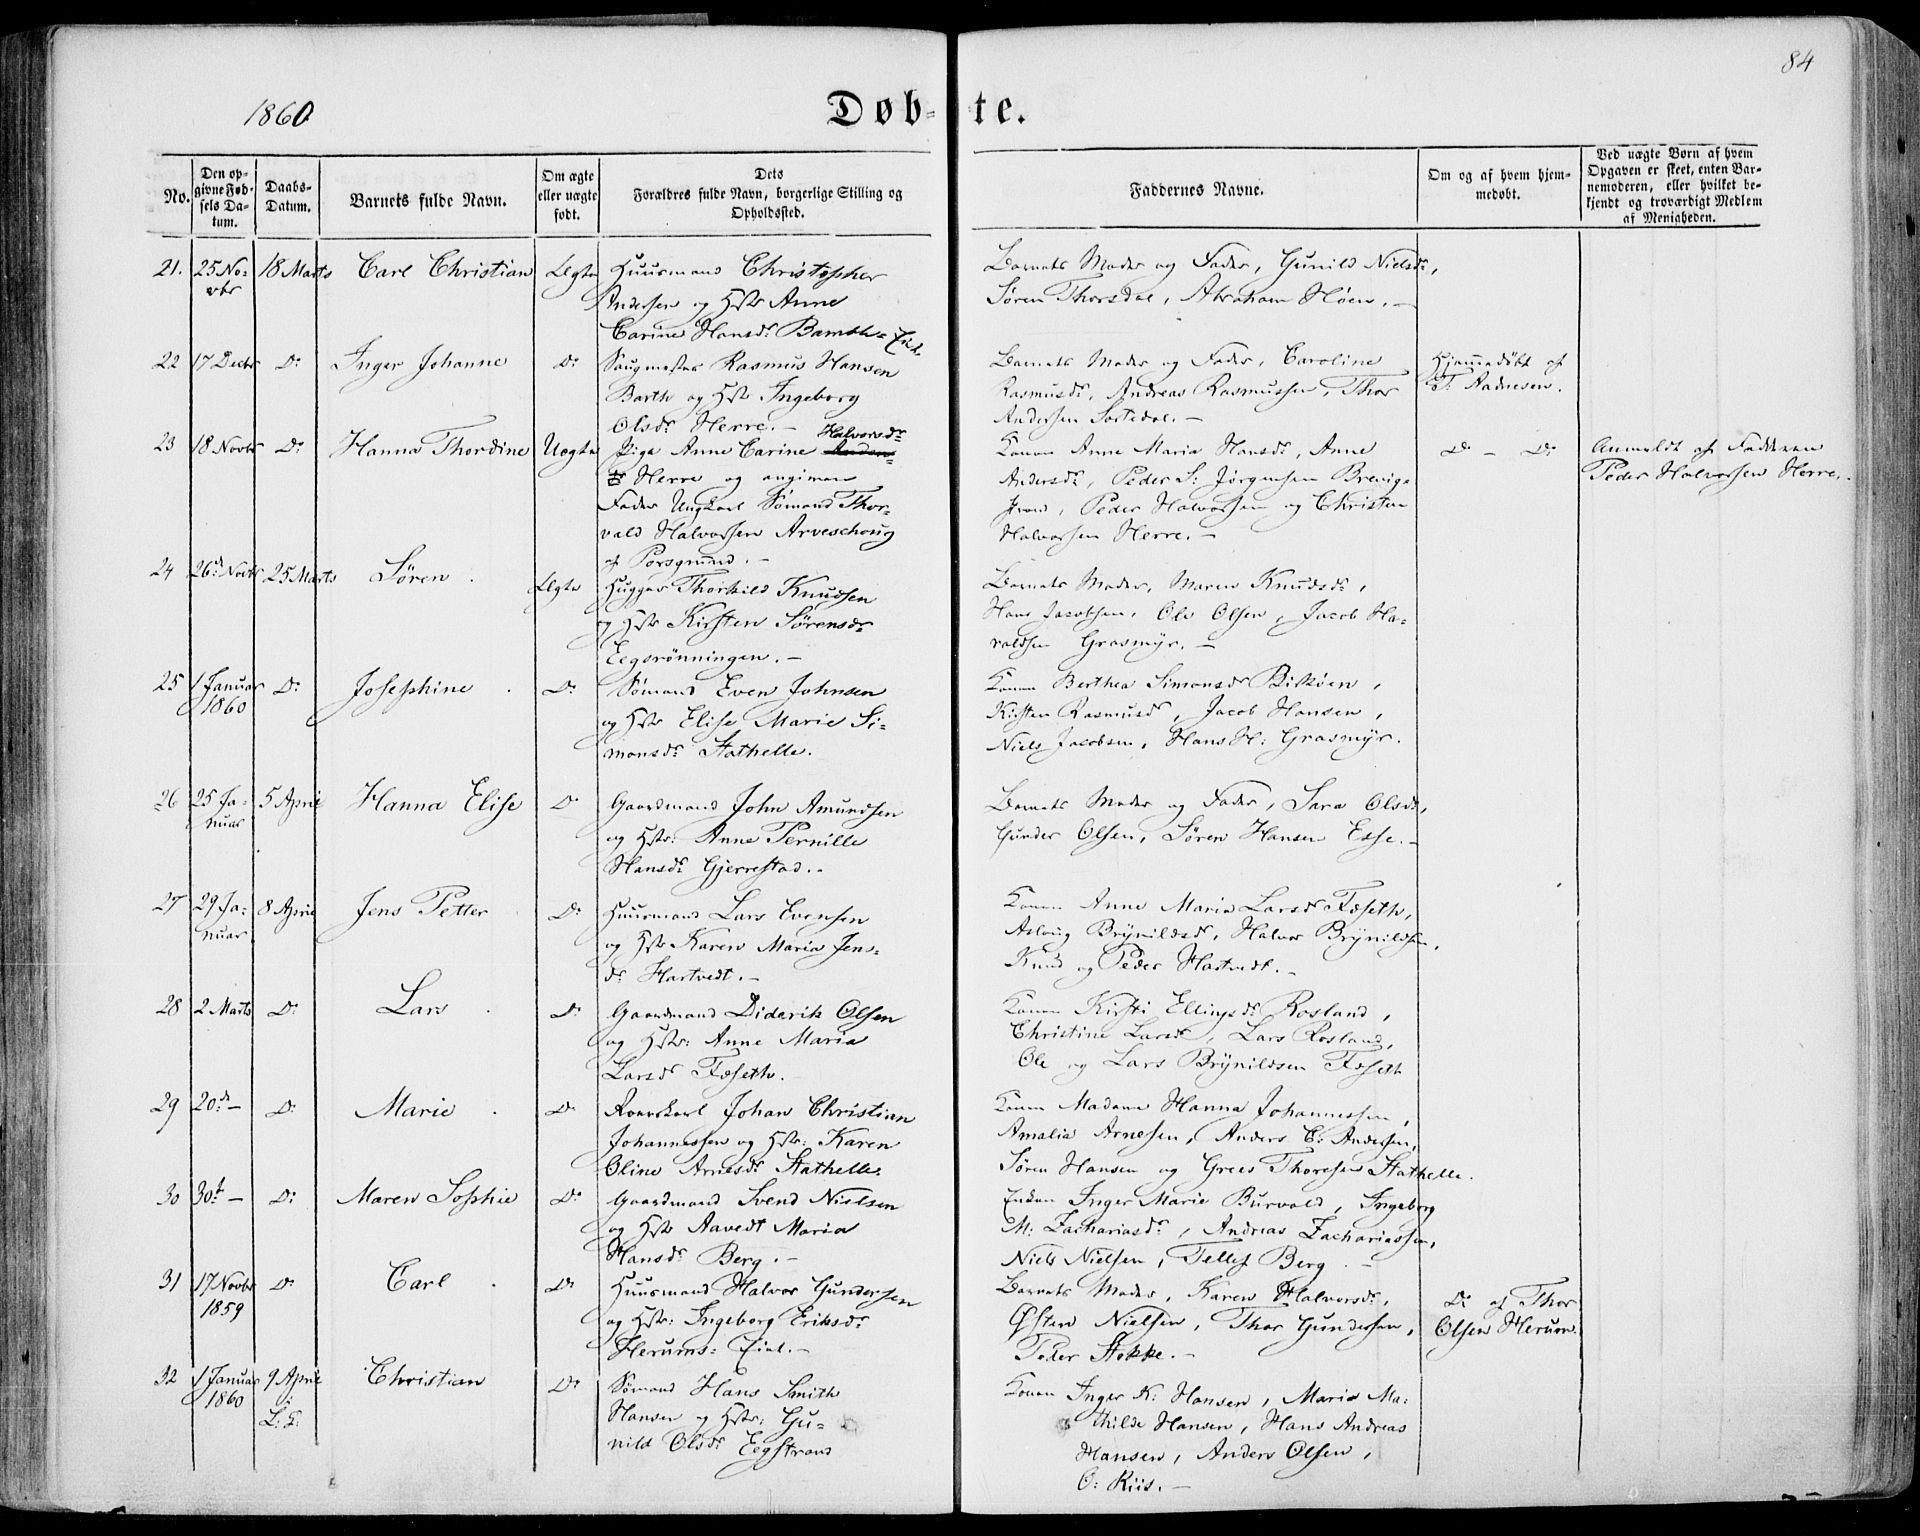 84
1860
Døb-te.
No.
Den op-
givne Fød-
sels Da-
tum.
Daabs-
Datum.
Barnets fulde Navn.
Om ægte
eller uægte
født.
Dets
Forældres fulde Navn, borgerlige Stilling og
Opholdssted.
Faddernes Navne.
Om og af hvem hjem-
medøbt.
Ved uægte Børn af hvem
Opgaven er skeet, enten Bar-
nemoderen, eller hvilket be-
kjendt og troværdigt Medlem
af Menigheden.
21. 25 No- 18 Marts Carl Christian Ægte Huusmand Christopher
vbr
Andersen og Hstr Anne
Carine Hansdr Bamble-Eiet.
Barnets Moder og Fader, Gunild Nielsdr,
Søren Thorsdal, Abraham Høen. –
22 17 Decbr Do Inger Johanne Do Saugmester Rasmus Hansen
Barth og Hstr Ingeborg
Olsdr Herre. –
Barnets Moder og Fader, Caroline
Rasmusdr, Andreas Rasmussen, Thor
Andersen Sortedal. –
Hjemmedøbt af
T. Andresen.
23 18 Novbr Do Hanna Thordine Uægte Pige Anne Carine Halvorsdr
Herre og angiven
Fader Ungkarl Sømand Thor-
vald Halvorsen Arveschoug
af Porsgrund. –
Konen Anne Maria Hansdr, Anne
Andersdr, Peder S: Jørgensen Brevig-
strand, Peder Halvorsen og Christen
Halvorsen Herre. –
Do – Do
Anmeldt af Fadderen
Peder Halvorsen Herre.
24 26d Novbr 25 Marts Søren Ægte Hugger Thorkild Knudsen
og Hstr Kirsten Sørensdr
Eegsrönningen. –
Barnets Moder, Maren Knudsdr,
Hans Jacobsen, Ole Olsen, Jacob Ha-
raldsen Grasmyr. –
25 1 Januar Do Josephine Do Sømand Even Johnsen
1860
og Hstr Elise Marie Si-
monsdr Stathelle.
Konen Berthea Simonsdr Birköen,
Kirsten Rasmusdr, Jacob Hansen,
Niels Jacobsen, Hans H: Grasmyr.
26 25 Ja- 5 April Hanna Elise Do Gaardmand John Amundsen
nuar
og Hstr: Anne Pernille
Hansdr Gjerrestad. –
Barnets Moder og Fader, Sara Olsdr,
Gunder Olsen, Søren Hansen Esse. –
27 29 Ja- 8 April Jens Petter Do Huusmand Lars Evensen
nuar
og Hstr Karen Maria Jens-
dr Hartvedt. –
Konen Anne Maria Larsdr Fæseth,
Aslaug Brynildsdr, Halvor Brynildsen,
Knud og Peder Hartvedt. –
28 2 Marts Do Lars Do Gaardmand Diderik Olsen
og Hstr: Anne Maria
Larsdr Fæseth.
Konen Kirsti Ellingsdr Rosland,
Christine Larsdr, Lars Rosland,
Ole og Lars Brynildsen Fæseth
29 20d – Do Marie Do Johan Christian
Johannessen og Hstr: Karen
Oline Arnesdr Stathelle.
Konen Madame Hanna Johannessen,
Amalia Arnesen, Anders C: Andersen,
Søren Hansen og Grees Thoresen Stathelle.
30 30t – Do Maren Sophie Do Gaardmand Svend Nielsen
og Hstr Aavedt Maria
Hansdr Berg. –
Enken Inger Marie Burvald, Ingeborg
M: Zachariasdr, Andreas Zachariassen,
Niels Nielsen, Tellef Berg. –
31 17 Novbr Do Carl Do Huusmand Halvor Gundersen
1859
og Hstr: Ingeborg Eriksdr
Herums-Eiet. –
Barnets Moder, Karen Halvorsdr,
Østen Nielsen, Thor Gundersen,
Peder Stokke. –
Do af Thor
Olsen Herum.
32 1 Januar 9 April Christian Do Sømand Hans Smith
1860
i
L: K:
Hansen og Hstr: Gu-
nild Olsdr Eegstrand
Konen Inger K: Hansen, Maria Ma-
thilde Hansen, Hans Andreas
Hansen, Anders Olsen,
O: Riis. –